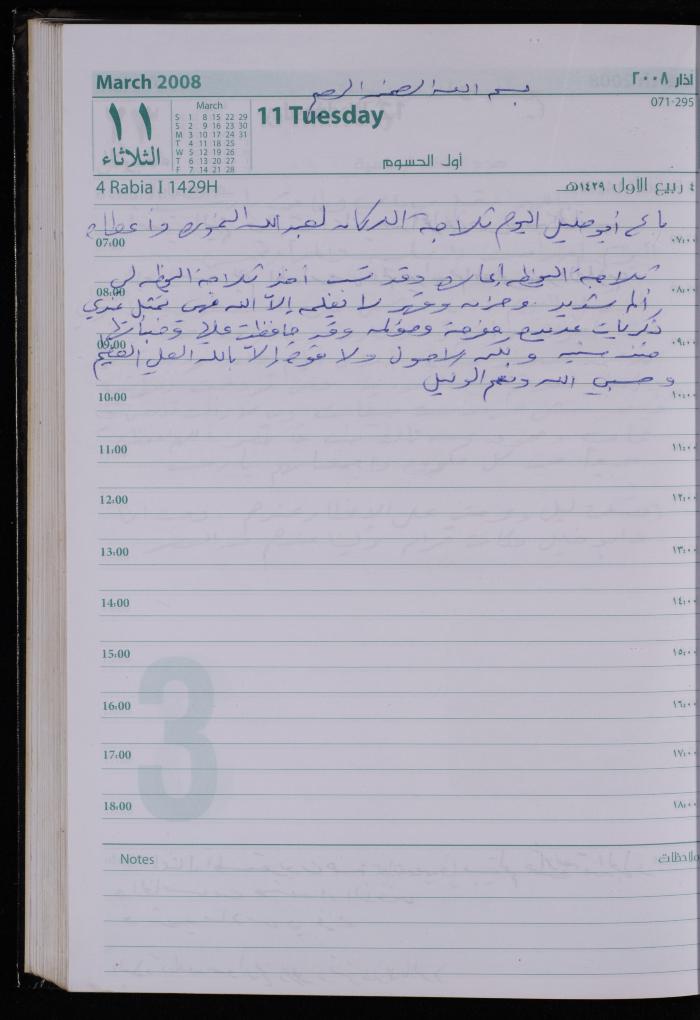 March 2008
بسم الله الرحمن الرحيم
آذار ٢٠٠٨
071-295
١١
الثلاثاء
March
S 1 8 15 22 29
S 2 9 16 23 30
M 3 10 17 24 31
T 4 11 18 25
W 5 12 19 26
T 6 13 20 27
F 7 14 21 28
11 Tuesday
أول الحسوم
4 Rabia I 1429H
٤ ربيع الاول ١٤٢٩هـ
باع أبو خليل اليوم ثلاجة الدكان لعبد الله وأعطاه
07:00 ٠٧:٠٠
ثلاجة البوظه وقد سبب أخذ ثلاجة البوظه لي
08:00 ٠٨:٠٠
ألم شديد وحزن وقهر لا يعلمه إلاّ الله فهي تمثل عندي
ذكريات عديده وقد حافظت عليها
09:00 ٠٩:٠٠
منذ سنين ولكن لا حول ولا قوة إلاّ بالله العلي العظيم
وحسبي الله ونعم الوكيل
10:00 ١٠:٠٠
11:00 ١١:٠٠
12:00 ١٢:٠٠
13:00 ١٣:٠٠
14:00 ١٤:٠٠
15:00 ١٥:٠٠
3
16:00 ١٦:٠٠
17:00 ١٧:٠٠
18:00 ١٨:٠٠
Notes
ملاحظات